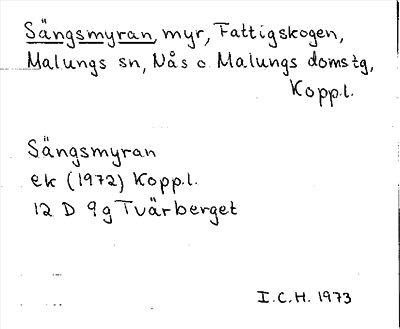 Sängsmyran, myr, Fattigskogen,
Malungs sn, Nås o Malungs domstg,
Kopp.l.
Sängsmyran
ek (1972) Kopp.l.
12 D 9g Tvärberget
I.C.H. 1973